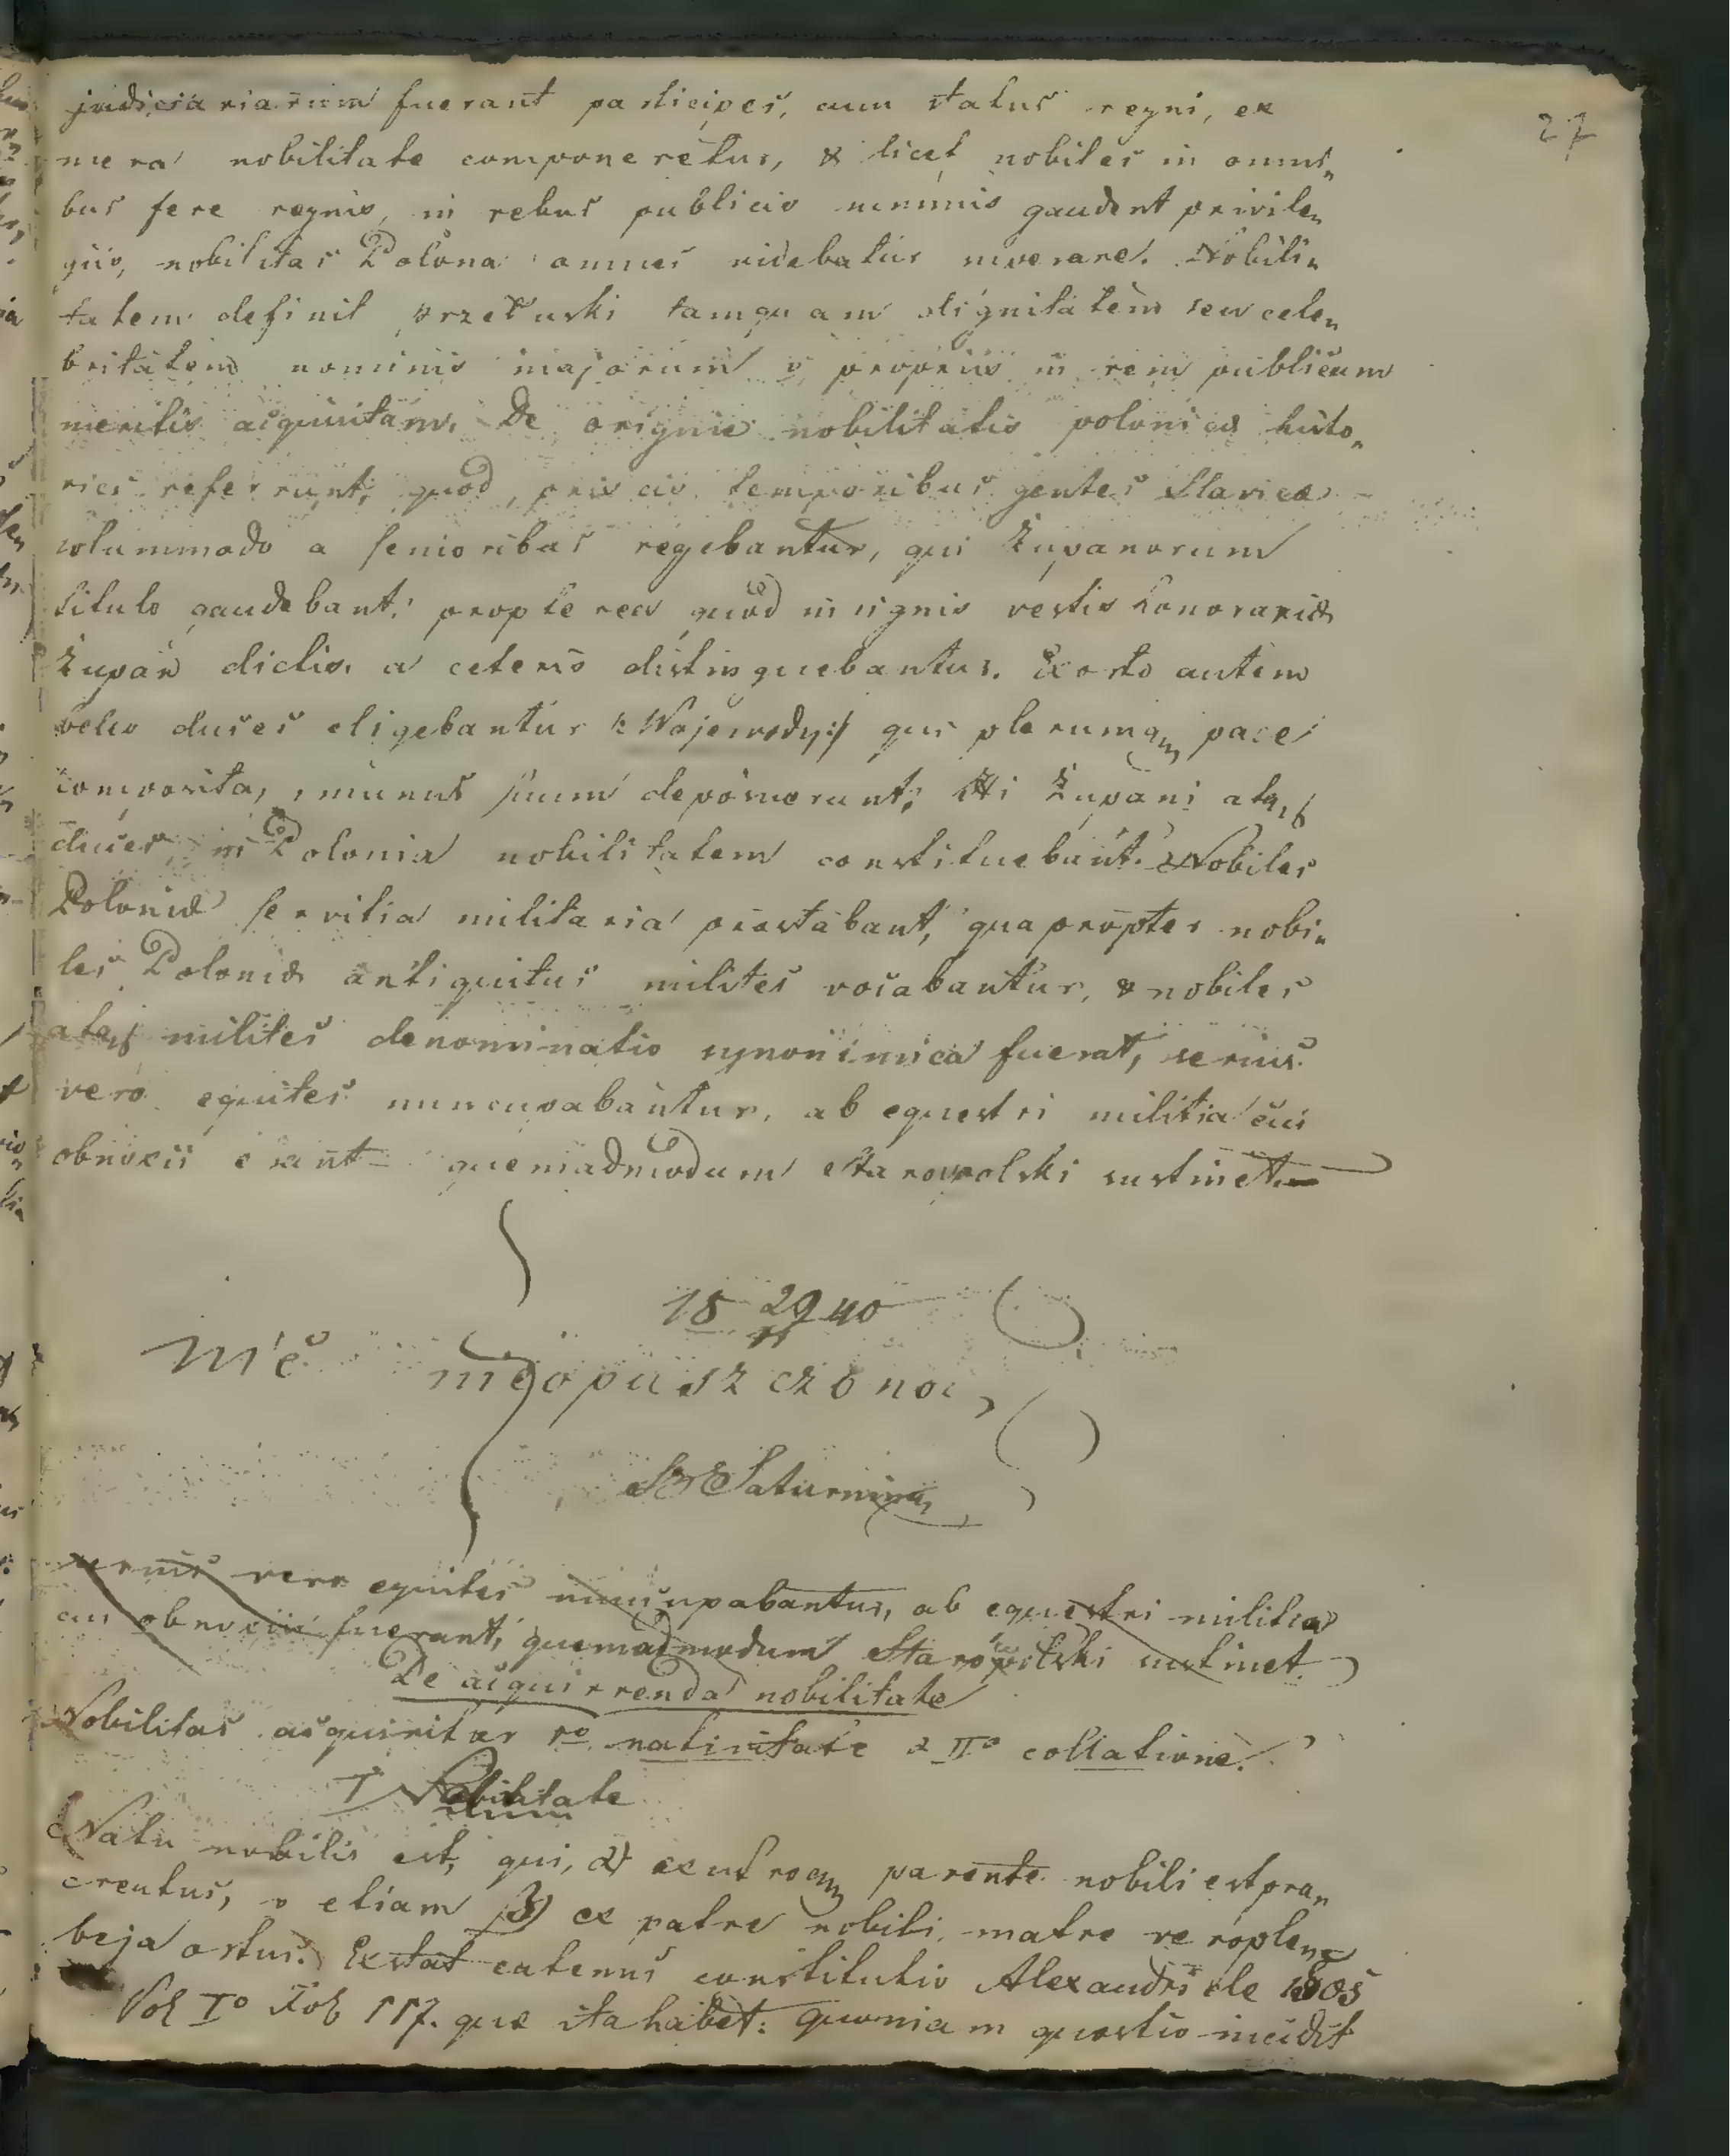 27
judiciariarum fuerant participes, cum status regni, ex
mera nobilitate componeretur, & licet nobiles in omni„
bus fere regnis, in rebus publicis nimmis gaudent privile„
giis, nobilitas Polona omnes videbatur superare. Nobili„
tatem definit Przełuski tamquam dignitatem seu cele„
britatem nominis majorum v propriis in rem publicam
meritis acquisitam. De origine nobilitatis polonicæ histo„
rici referrunt, quod, priscis temporibus gentes Slavicæ
solummodo a senioribus regebantur, qui Županorum
titulo gaudebant, propterea quod insignis vestis honorariæ
Župan dictis, a ceteris distinguebantur. Exorto autem
bello duces eligebantur /: Wojewody :/ qui plerumqm pace
composita, munus suum deposuerunt; Hi Župani atqs
duces, in Polonia nobilitatem constituebant. Nobiles
Poloniæ servitia militaria præstabant, quapropter nobi„
les Poloniæ antiquitus milites vocabantur, & nobiles
atqs milites denominatio synonimica fuerat, serius
vero equites nuncupabantur, ab equestri militia cui
obnoxii erant quemadmodum Starowolski sustinet.
18 29/11 40
nic nieopuszczono,
Saturnina
serius vero equites nuncupabantur, ab equestri militia
cui obnoxii fuerant, quemadmodum Starowolski sustinet
De acquirrenda nobilitate
Nobilitas acquiritur Io nativitate & IIo collatione.
I
Natu nobilis est, qui, α) ex utroqm parente nobili est pro„
creatus, v etiam β) ex patre nobili, matre vero ple„
beja ortus. Extat eatenus constitutio Alexandri de 1505
Vol Io Fol 117. quæ ita habet: Quoniam quæstio incidit